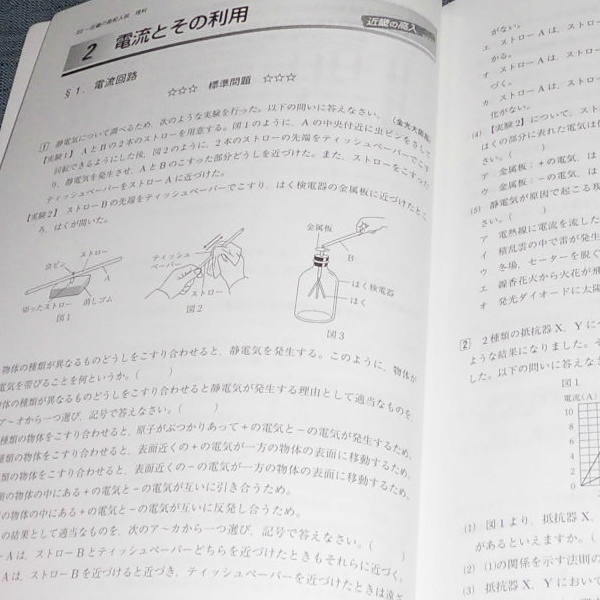 2 電流とその利用
近畿の高入
§1. 電流回路
☆☆☆ 標準問題 ☆☆☆
1 静電気について調べるため、次のような実験を行った。以下の問いに答えなさい。
【実験1】 AとBの2本のストローを用意する。図1のように、Aの中央付近に虫ピンをさして
回転できるようにした後、図2のように、2本のストローの先端をティッシュペーパーでこす
り、静電気を発生させ、AとBのこすった部分どうしを近づけた。また、ストローをこすった
ティッシュペーパーをストローAに近づけた。
【実験2】 ストローBの先端をティッシュペーパーでこすり、はく検電器の金属板に近づけたとこ
ろ、はくが開いた。
虫ピン
ストロー
A
切ったストロー
消しゴム
図1
ティッシュ
ペーパー
ストロー
図2
金属板
B
はく検電器
はく
図3
物体の種類が異なるものどうしをこすり合わせると、静電気を発生する。このように、物体が
電気を帯びることを何というか。( )
体の種類が異なるものどうしをこすり合わせると静電気が発生する理由として適当なものを、
ア～オから一つ選び、記号で答えなさい。( )
種類の物体をこすり合わせると、原子がぶつかりあって+の電気と-の電気が発生するため。
種類の物体をこすり合わせると、表面近くの+の電気が一方の物体の表面に移動するため。
類の物体をこすり合わせると、表面近くの-の電気が一方の物体の表面に移動するため。
の物体の中にある+の電気と-の電気が互いに引き合うため。
の物体の中にある+の電気と-の電気が互いに反発し合うため。
の結果として適当なものを、次のア～カから一つ選び、記号で答えなさい。( )
ーAは、ストローBとティッシュペーパーどちらを近づけたときもそれらに近づく。
Aは、ストローBを近づけると近づき、ティッシュペーパーを近づけたときは遠ざ
がない。
エ ストローAは、スト
かる。
オ ストローAは、スト
づく。
カ ストローAは、スト
化がない。
(4) 【実験2】について、スト
はくの部分に表れた電気は
さい。( )
ア 金属板:+の電気、は
ウ 金属板:-の電気、は
(5) 静電気が原因で起こる現
さい。( )
ア 電熱線に電流を流した
イ 積乱雲の中で雷が発生
ウ 冬場、セーターを脱ぐ
エ 線香花火から火花が飛
オ 発光ダイオードに太陽
2 2種類の抵抗器X、Yにつ
ような結果になりました。
した。以下の問いに答えなさ
図1
電流(A)
10
8
6
4
2
0
(1) 図1より、抵抗器X、
があるといえますか。(
(2) (1)の関係を示す法則の
(3) 抵抗器X、Yにおいて